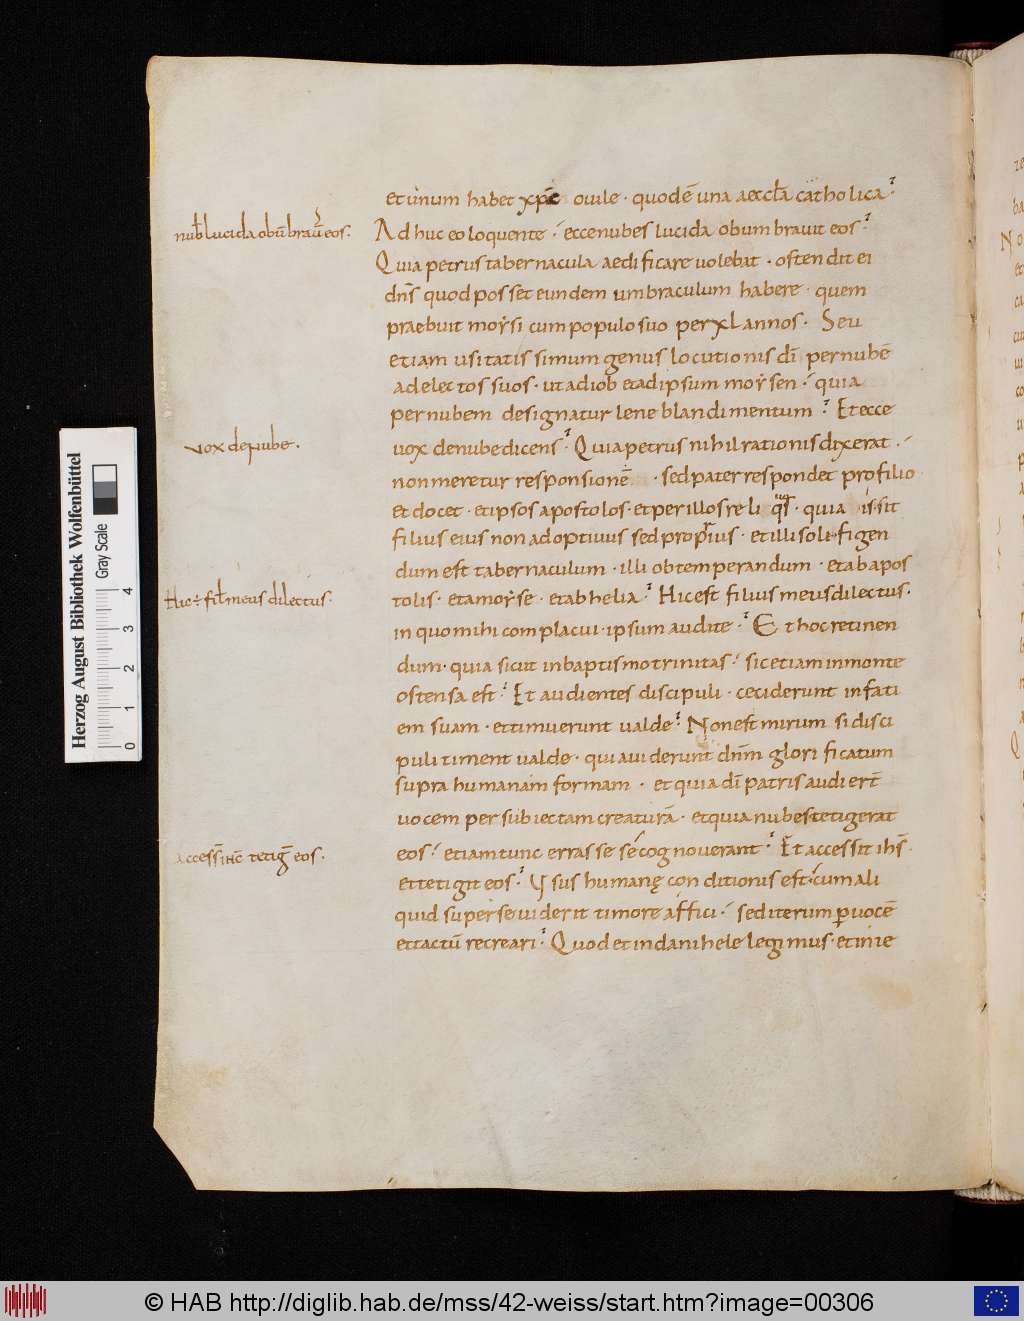 et unum habet xp̄c ouile · quod ē una aeccl̄a catholica·
nub̄ lucida obūbrau̅ eos·
Adhuc eo loquente · ecce nubes lucida obumbrauit eos·
Quia petrus tabernacula aedificare uolebat · ostendit ei
dn̄s quod posset eundem umbraculum habere · quem
praebuit moysi cum populo suo per xl annos · Seu
etiam usitatissimum genus locutionis dī per nubē
ad electos suos · ut ad iob et ad ipsum moysen · quia
per nubem designatur lene blandimentum · Et ecce
vox de nube·
uox de nube dicens · Quia petrus nihil rationis dixerat ·
non meretur responsionē · sed pater respondet pro filio
et docet · et ipsos apostolos · et per illos reliq̄s · quia is sit
filius eius non adoptiuus sed proprius · et illi soli figen
dum est tabernaculum · illi obtemperandum · et ab apos
Hic ÷ fil̄ meus dilectus·
tolis · et a moyse · et ab helia · Hic est filius meus dilectus·
in quo mihi complacui · ipsum audite · Et hoc retinen
dum · quia sicut in baptismo trinitas · sic etiam in monte
ostensa est · Et audientes discipuli · ceciderunt in faci
em suam · et timuerunt ualde · Non est mirum si disci
puli timent ualde · qui uiderunt dn̄m glorificatum
supra humanam formam · et quia dī patris audiert̄
uocem per subiectam creaturā · et quia nubes tetigerat
accessit̄ ihc̄ tetiḡ eos·
eos · etiam tunc errasse se cognouerant · Et accessit ihs̄ ·
et tetigit eos · Usus humanę conditionis est · cum ali
quid super se uiderit timore affici · sed iterum p uocē
et tactū recreari · Quod et in danihele legimus · et in ie
Herzog August Bibliothek Wolfenbüttel
Gray Scale
0 1 2 3 4
© HAB http://diglib.hab.de/mss/42-weiss/start.htm?image=00306